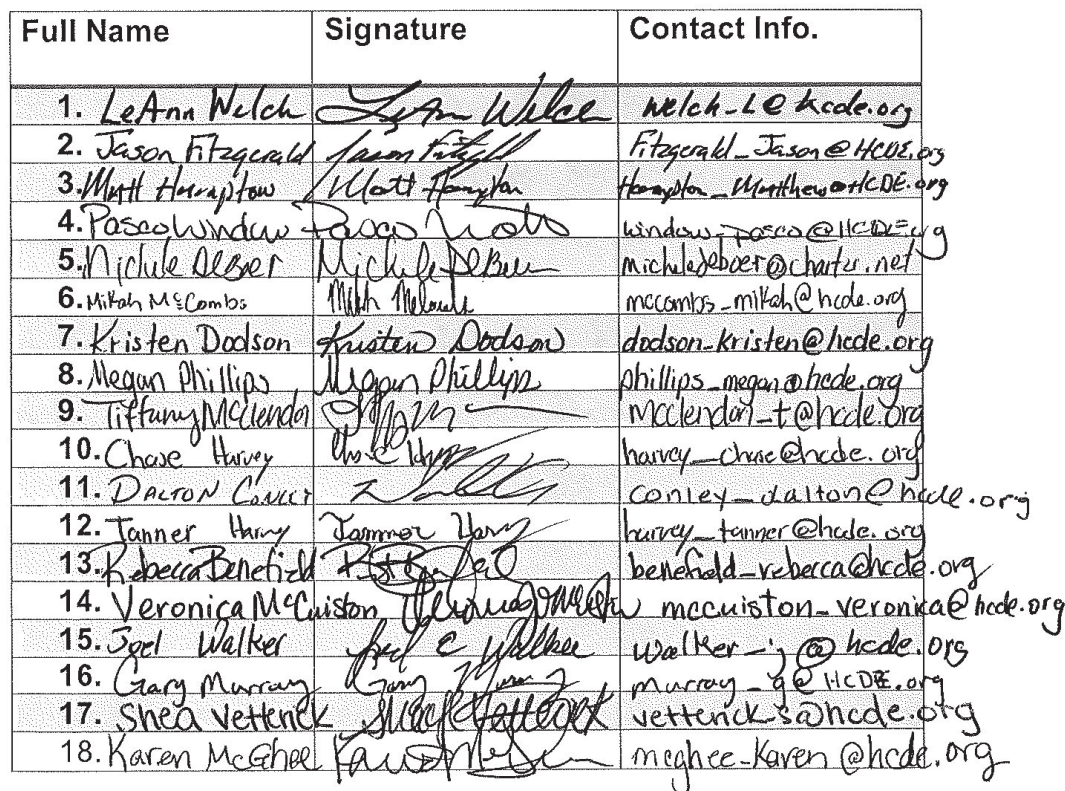 Full Name Signature Contact Info.
1. LeAnn Welch LeAnn Welch welch_L@hcde.org
2. Jason Fitzgerald Jason Fitzgerald_Jason@HCDE.org
3. Matt Hampton Matt Hampton Hampton_Matthew@HCDE.org
4. Pasco Window Pasco window_pasco@HCDE.org
5. Michele DeBoer Michele DeBoer micheledeboer@charter.net
6. Mikah McCombs mccombs_mikah@hcde.org
7. Kristen Dodson Kristen Dodson dodson_kristen@hcde.org
8. Megan Phillips Megan Phillips phillips_megan@hcde.org
9. Tiffany McClendon mcclendon_t@hcde.org
10. Chase Harvey Chase harvey_chase@hcde.org
11. DALTON CONLEY conley_dalton@hcde.org
12. Tanner Harvey Tanner Harvey harvey_tanner@hcde.org
13. Rebecca Benefield benefield_rebecca@hcde.org
14. Veronica McCuiston mccuiston_veronica@hcde.org
15. Joel Walker Joel C Walker walker_j@hcde.org
16. Gary Murray Gary Murray murray_g@HCDE.org
17. Shea Vettenck vettenck_s@hcde.org
18. Karen McGhee mcghee_karen@hcde.org